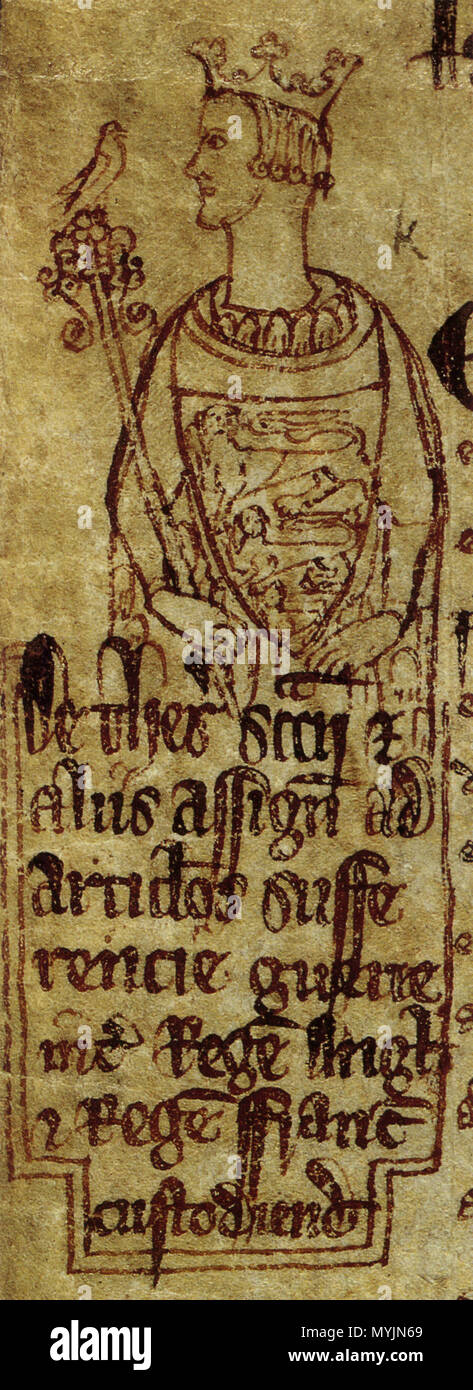 K
De thes̄ sccij ⁊
aliis assign̄ ad
articłos suffe
rencie guerre
int̄ Regē Angł
⁊ Regē ffranc̄
custodiend̄
alamy
Image ID: MYJN69
www.alamy.com